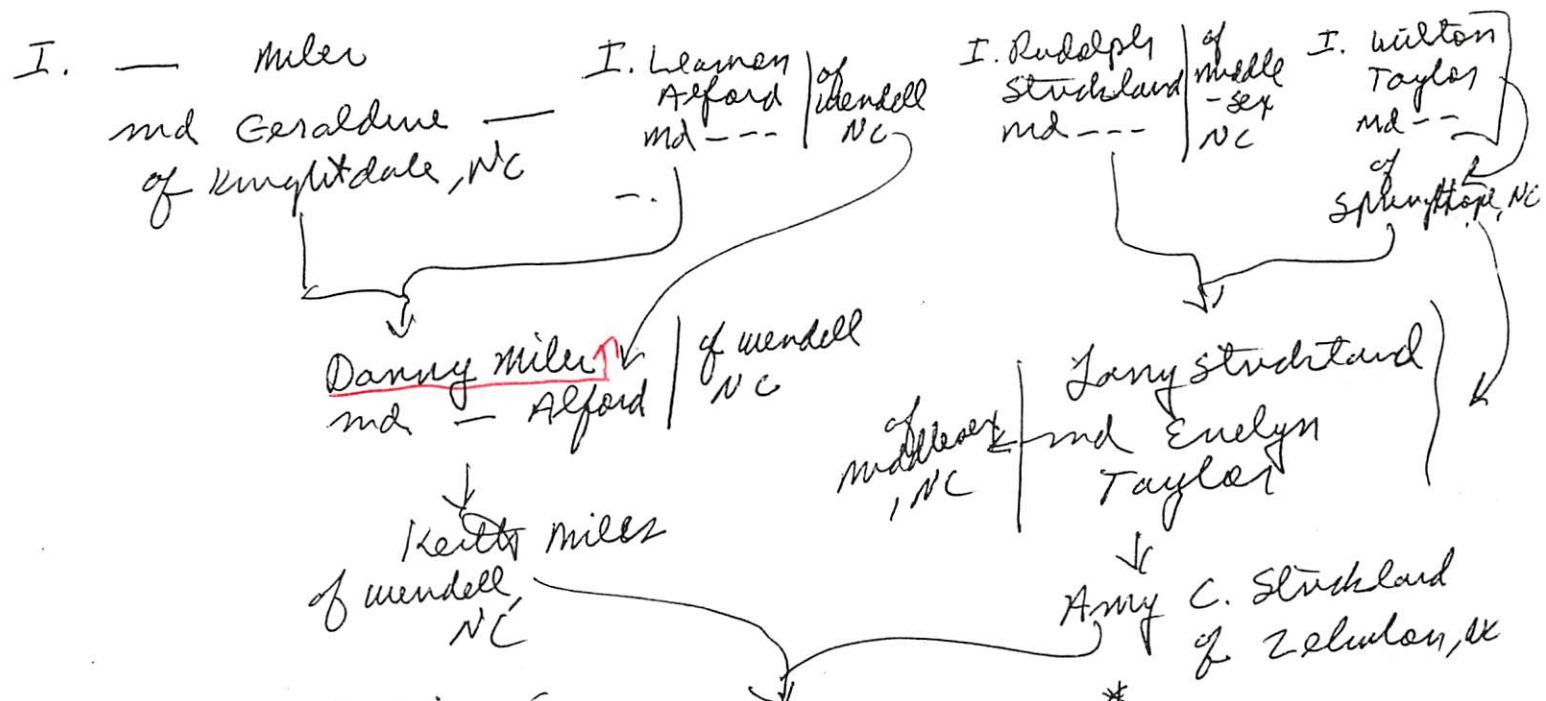 I. — Miler
md Geraldine —
of Knightdale, NC
I. Leamon
Alford
md - - -
of
Wendell
NC
I. Rudolph
Strickland
md - - -
of
Middle
-sex
NC
I. Wilton
Taylor
md - -
of
Springhope, NC
Danny Miler
md — Alford
of Wendell
NC
Larry Strickland
md Evelyn
Taylor
of
Middlesex
, NC
Keith Miler
of Wendell,
NC
Amy C. Strickland
of Zebulon, NC
*